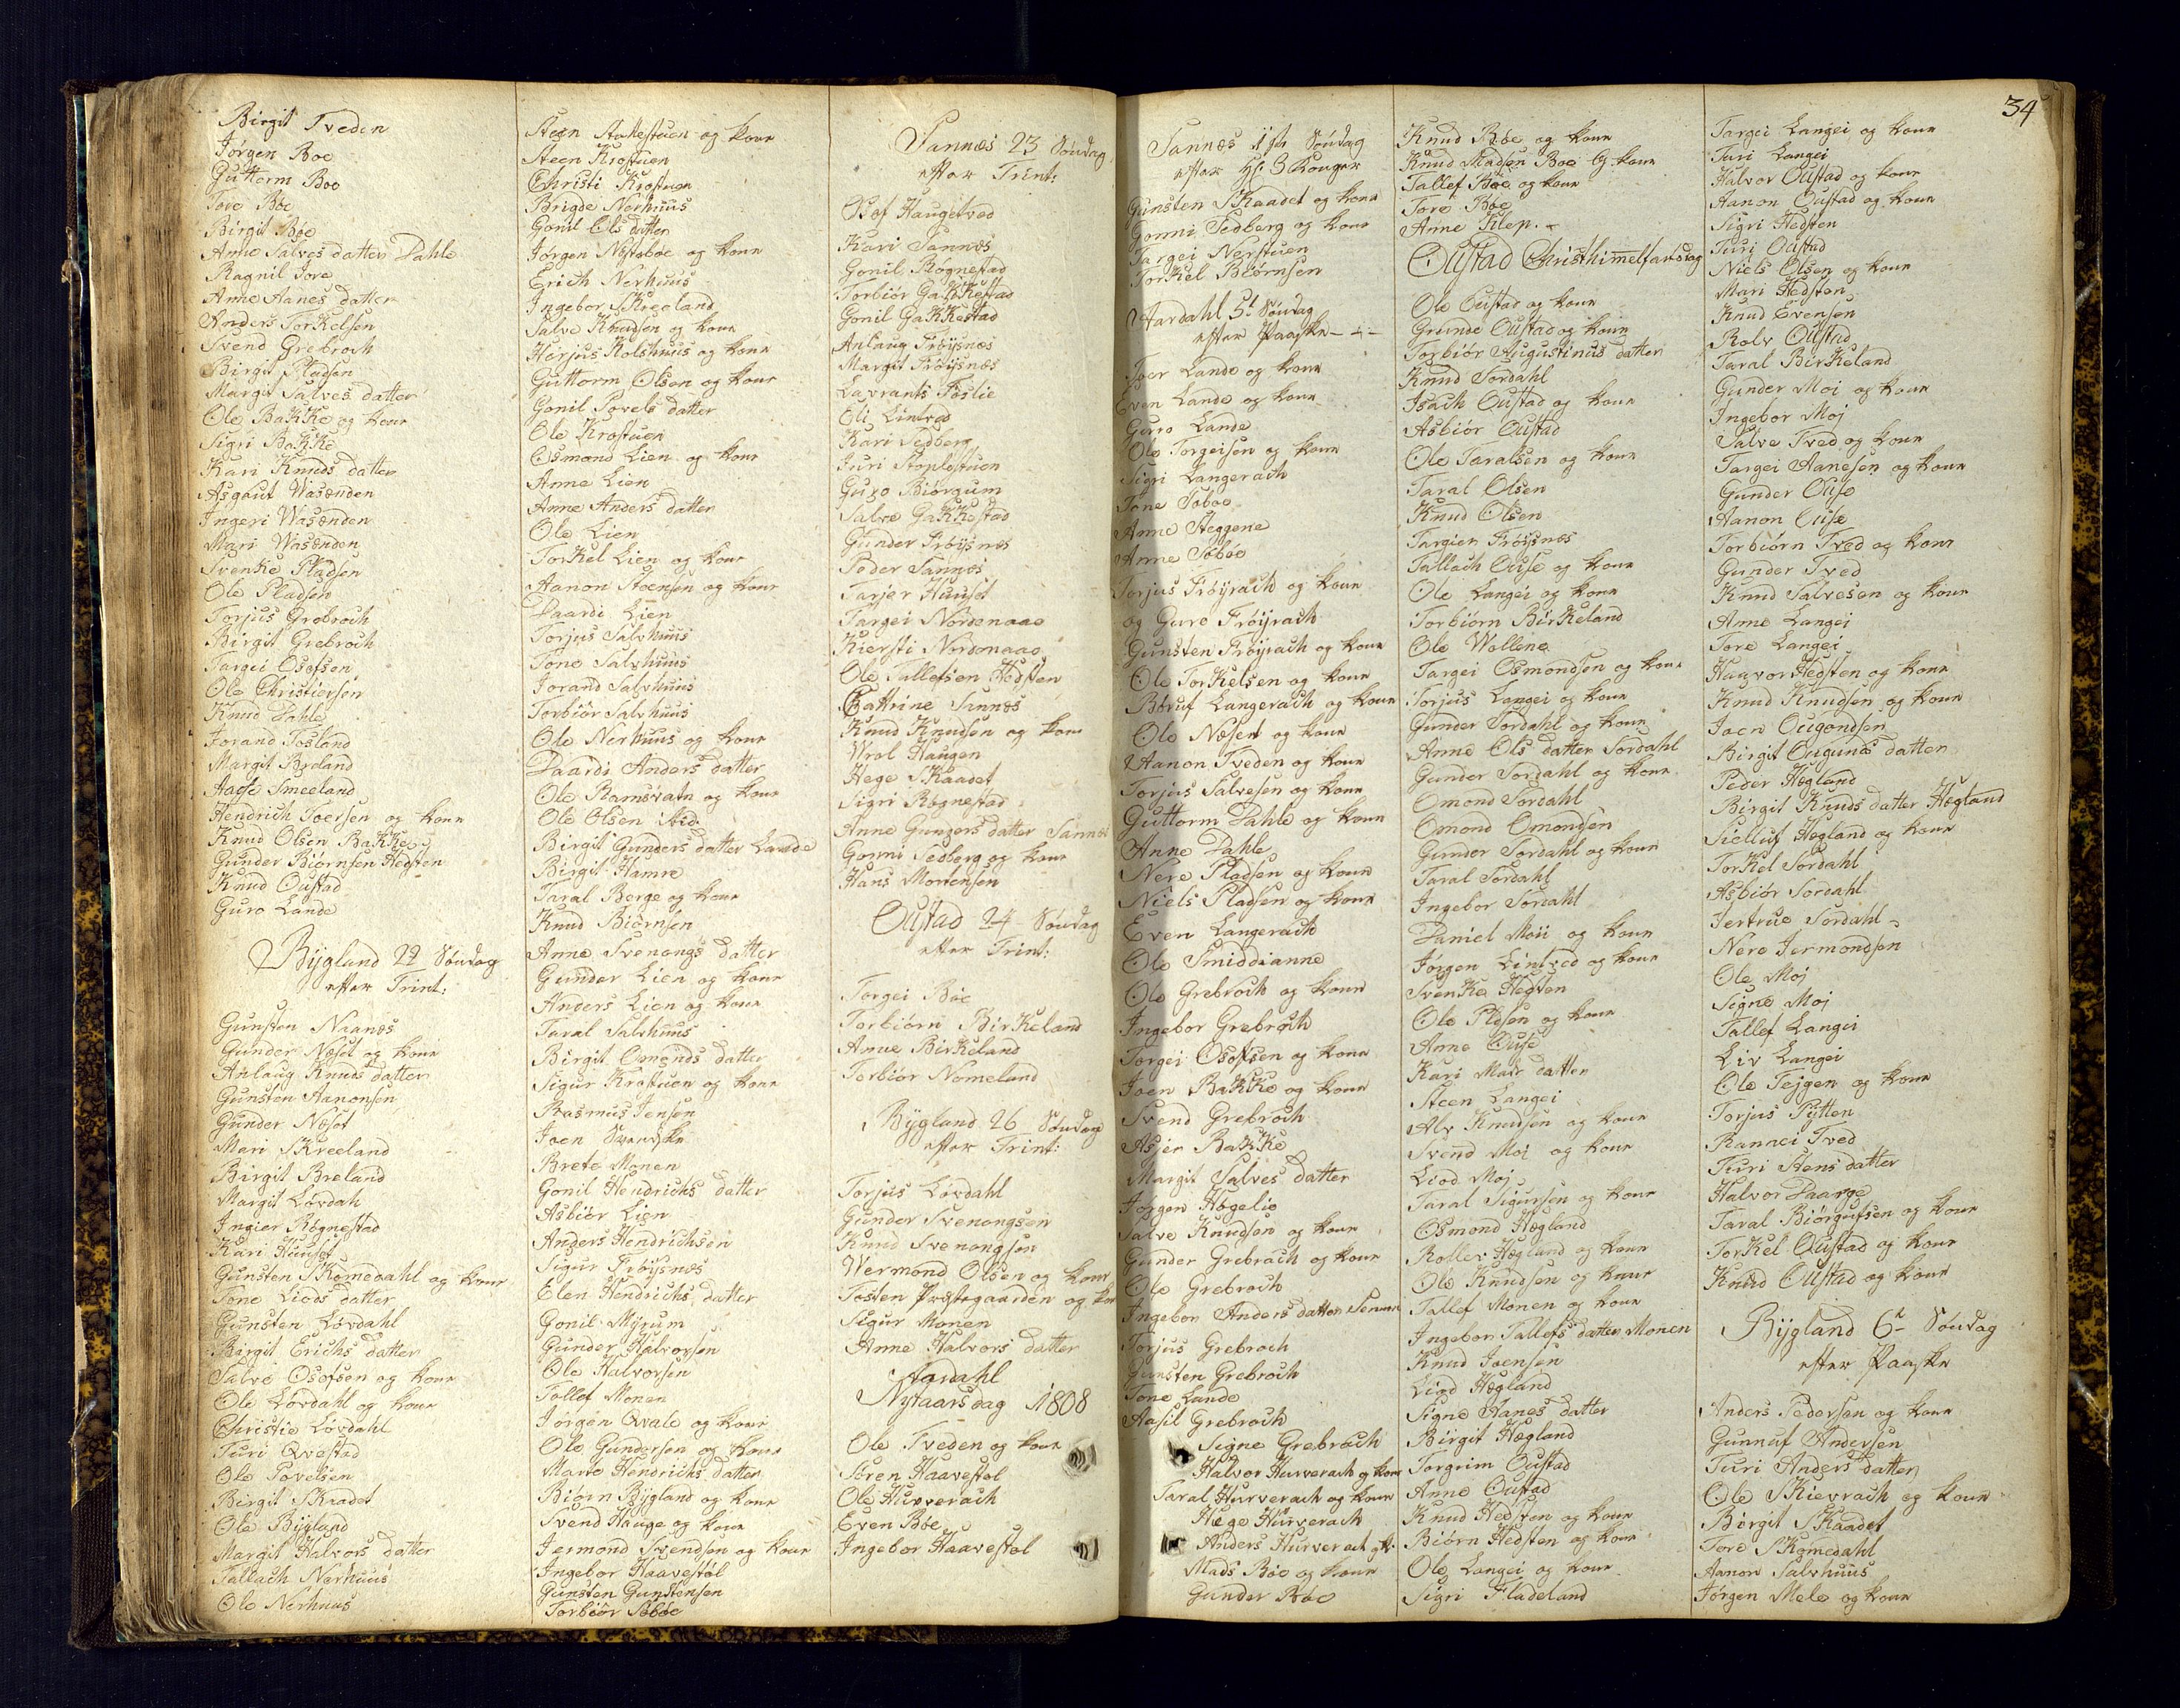 Birgit Tveden
Jørgen Boe
Guttorm Boe
Tore Bøe
Birgit Bøe
Anne Salves datter Dahle
Ragnil Jore
Anne Aanes datter
Anders Torkelsen
Svend Grebroch
Birgit Pladsen
Margit Salves datter
Ole Bakke og kone
Sigri Bakke
Kari Knuds datter
Asgaut Wasenden
Ingeri Wasenden
Mari Wasenden
Svenke Pladsen
Ole Pladsen
Torjus Grobroch
Birgit Grebroch
Targei Osofsen
Ole Christiersen
Knud Dahle
Jorand Fosland
Margit Røsland
Aaese Smeeland
Hendrich Toersen og kone
Knud Olsen Bakke
Gunder Biørnsen Hedsten
Knud Oustad
Guro Lande
Bygland 22 Søndag
efter Trint:
Gunsten Naanes
Gunder Næset og kone
Anlaug Knuds datter
Gunsten Aanonsen
Gunder Næset
Mari Skreeland
Birgit Breland
Margit Lovdah
Ingier Rognestad
Kari Huuset
Gunsten Skomedahl og kone
Tone Liods datter
Gunsten Lovdahl
Birgit Erichs datter
Salve Osofsen og kone
Ole Lovdahl og kone
Christie Lovdahl
Turi Qvestad
Ole Povelsen
Birgit Skaadet
Ole Bygland
Margit Halvors datter
Tallach Nerhuus
Ole Nerhuus
Steen Stallestuen og kone
Steen Krostuen
Christi Krostuen
Brigde Nerhuus
Gonil Ols datter
Jørgen Nestebøe og kone
Erich Nerhuus
Ingebor Skreeland
Salve Knudsen og kone
Herjus Kolshuus og kone
Guttorm Olsen og kone
Gonil Povels datter
Ole Krostuen
Osmond Lien og kone
Anne Lien
Anne Anders datter
Ole Lien
Torkel Lien og kone
Aanon Stoensen og kone
Daardi Lien
Torjus Salvhuus
Tone Salvhuus
Jorand Salvhuus
Torbiør Salvhuus
Ole Nerhuus og kone
Daardi Anders datter
Ole Ramsvatn og kone
Ole Olsen ibid.
Birgit Gunders datter Lande
Birgit Hamre
Taral Berge og kone
Knud Biørnsen
Anne Svenongs datter
Gunder Lien og kone
Anders Lien og kone
Taral Salvhuus
Birgit Omonds datter
Sigur Krostuen og kone
Rasmus Jensen
Joen Svendske
Brete Monen
Gonil Hendrichs datter
Asbiør Lien
Anders Hendrichsen
Sigur Frøysnes
Elen Hendrichs datter
Gonil Myrum
Gunder Halvorsen
Ole Halvorsen
Tallef Monen
Jørgen Qvale og kone
Ole Gundersen og kone
Marte Hendrichs datter
Biørn Bygland og kone
Svend Hauge og kone
Jermond Svendsen og kone
Ingebor Haavestøl
Gunsten Gunstensen
Torbiør Søbøe
Sannes 23 Søndag
efter Trint:
Olef Haugetved
Kari Sannes
Gonil Rognestad
Torbiør Gakkestad
Gonil Gakkestad
Anlaug Frøysnes
Margit Frøysnes
Lavrants Foslie
Oli Lintved
Kari Sedberg
Juri Stoplestuen
Guro Biørgum
Salve Gakkestad
Gunder Frøysnes
Peder Sannes
Tarjer Huuset
Targei Nordenaae
Kiersti Nordenaae
Ole Tallefsen Hedsten
Cattrine Sunnes
Knud Knudsen og kone
Wrol Haugen
Hege Skaadet
Sigri Rognestad
Anne Gunders datter Sannes
Gonni Sedberg og kone
Hans Mortensen
Oustad 24 Søndag
efter Trint:
Torgei Boe
Torbiørn Birkeland
Anne Birkeland
Torbiør Nomeland
Bygland 26 Søndag
efter Trint:
Torjus Lovdahl
Gunder Svenongsen
Knud Svenongsen
Wermond Olsen og kone
Tosten Præstegaarden og kone
Sigur Monen
Anne Halvors datter
Aardahl
Nytaarsdag 1808
Ole Tveden og kone
Søren Haavestøl
Ole Hurverach
Even Bøe
Ingebor Haavestøl
34
Sannes 1ste Søndag
efter H: 3 Konger
Gunsten Skaadet og kone
Gonni Sedberg og kone
Targei Nerstuen
Torkel Biørnsen
Aardahl 5t Søndag
efter Paaske
Joer Lande og kone
Even Lande og kone
Guro Lande
Ole Torgeisen og kone
Sigri Langerach
Tone Søboe
Anne Steggene
Anne Søbøe
Torjus Frøyrach og kone
og Guro Frøyrach
Gunsten Frøyrach og kone
Ole Torkelsen og kone
Boruf Langerach og kone
Ole Næset og kone
Aanon Tveden og kone
Torjus Salvesen og kone
Guttorm Dahle og kone
Anne Dahle
Nere Pladsen og kone
Niels Pladsen og kone
Even Langerach
Ole Smiddianne
Ole Grebroch og kone
Ingebor Grebroch
Torgei Osofsen og kone
Joen Bakke og kone
Svend Grebroch
Asjer Bakke
Margit Salves datter
Jørgen Høgelie
Salve Knudsen og kone
Gunder Grebrach og kone
Ole Grebroch
Ingebor Anders datter Senum
Torjus Grebroch
Gunsten Grebroch
Tone Lande
Aasil Grebroch
Signe Grebroch
Halvor Hurverach og kone
Taral Hurverach og kone
Hege Hurverach
Anders Hurverach og k.
Mads Bøe og kone
Gunder Bøe
Knud Bøe og kone
Knud Madsen Boe og kone
Tallef Bøe og kone
Tore Bøe
Anne Klep.
Oustad Christhimelfartsdag
Ole Oustad og kone
Grunde Oustad og kone
Torbiør Augustinus datter
Knud Sordahl
Isach Oustad og kone
Asbiør Oustad
Ole Taralsen og kone
Taral Olsen
Knud Olsen
Targier Frøysnes
Tallach Ouse og kone
Ole Langei og kone
Torbiørn Birkeland
Ole Wollene
Targei Osmondsen og kone
Torjus Langei og kone
Gunder Sordahl og kone
Anne Ols datter Sordahl
Gunder Sordahl og kone
Omond Sordahl
Omond Omondsen
Gunder Sordahl og kone
Taral Sordahl
Ingebor Sordahl
Daniel Moii og kone
Jørgen Lintved og kone
Svenke Hegsten
Ole Pldsen og kone
Anne Ouse
Kari Mads datter
Steen Langei
Alv Knudsen og kone
Svend Moi og kone
Liod Moj
Taral Sigursen og kone
Osmond Hegland
Rollev Hegland og kone
Ole Knudsen og kone
Tallef Monen og kone
Ingebor Tallefs datter Monen
Knud Joensen
Liod Hegland
Signe Aanes datter
Birgit Hegland
Torgrim Oustad
Anne Oustad
Knud Hedsten og kone
Biørn Hedsten og kone
Ole Langei og kone
Sigri Fladeland
Targei Langei og kone
Turi Langei
Halvor Oustad og kone
Aanon Oustad og kone
Sigri Hedsten
Turi Oustad
Niels Olsen og kone
Mari Hedsten
Knud Evensen
Rolv Oustad
Taral Birkeland
Gunder Moi og kone
Ingebor Moj
Salve Tved og kone
Targei Aanesen og kone
Gunder Ouse
Aanon Ouse
Torbiorn Tved og kone
Gunder Tved
Knud Salvesen og kone
Anne Langei
Tore Langei
Haavor Hedsten og kone
Knud Knudsen og kone
Joen Ougondsen
Birgit Ougunds datter
Peder Hegland
Birgit Knuds datter Hegland
Sielluf Hegland og kone
Torkel Sordahl
Asbiør Sordahl
Jertrue Sordahl
Nere Jermondsen
Ole Moj
Signe Moj
Tallef Langei
Liv Langei
Ole Tejgen og kone
Torjus Pytten
Rannei Tved
Turi Stens datter
Halvor Daarge
Taral Biørgufsen og kone
Torkel Oustad og kone
Knud Oustad og kone
Bygland 6t Søndag
efter Paaske
Anders Pedersen og kone
Gunnuf Andersen
Turi Anders datter
Ole Skievrach og kone
Birgit Skaadet
Tore Skomedahl
Aanon Salvhuus
Jørgen Mele og kone